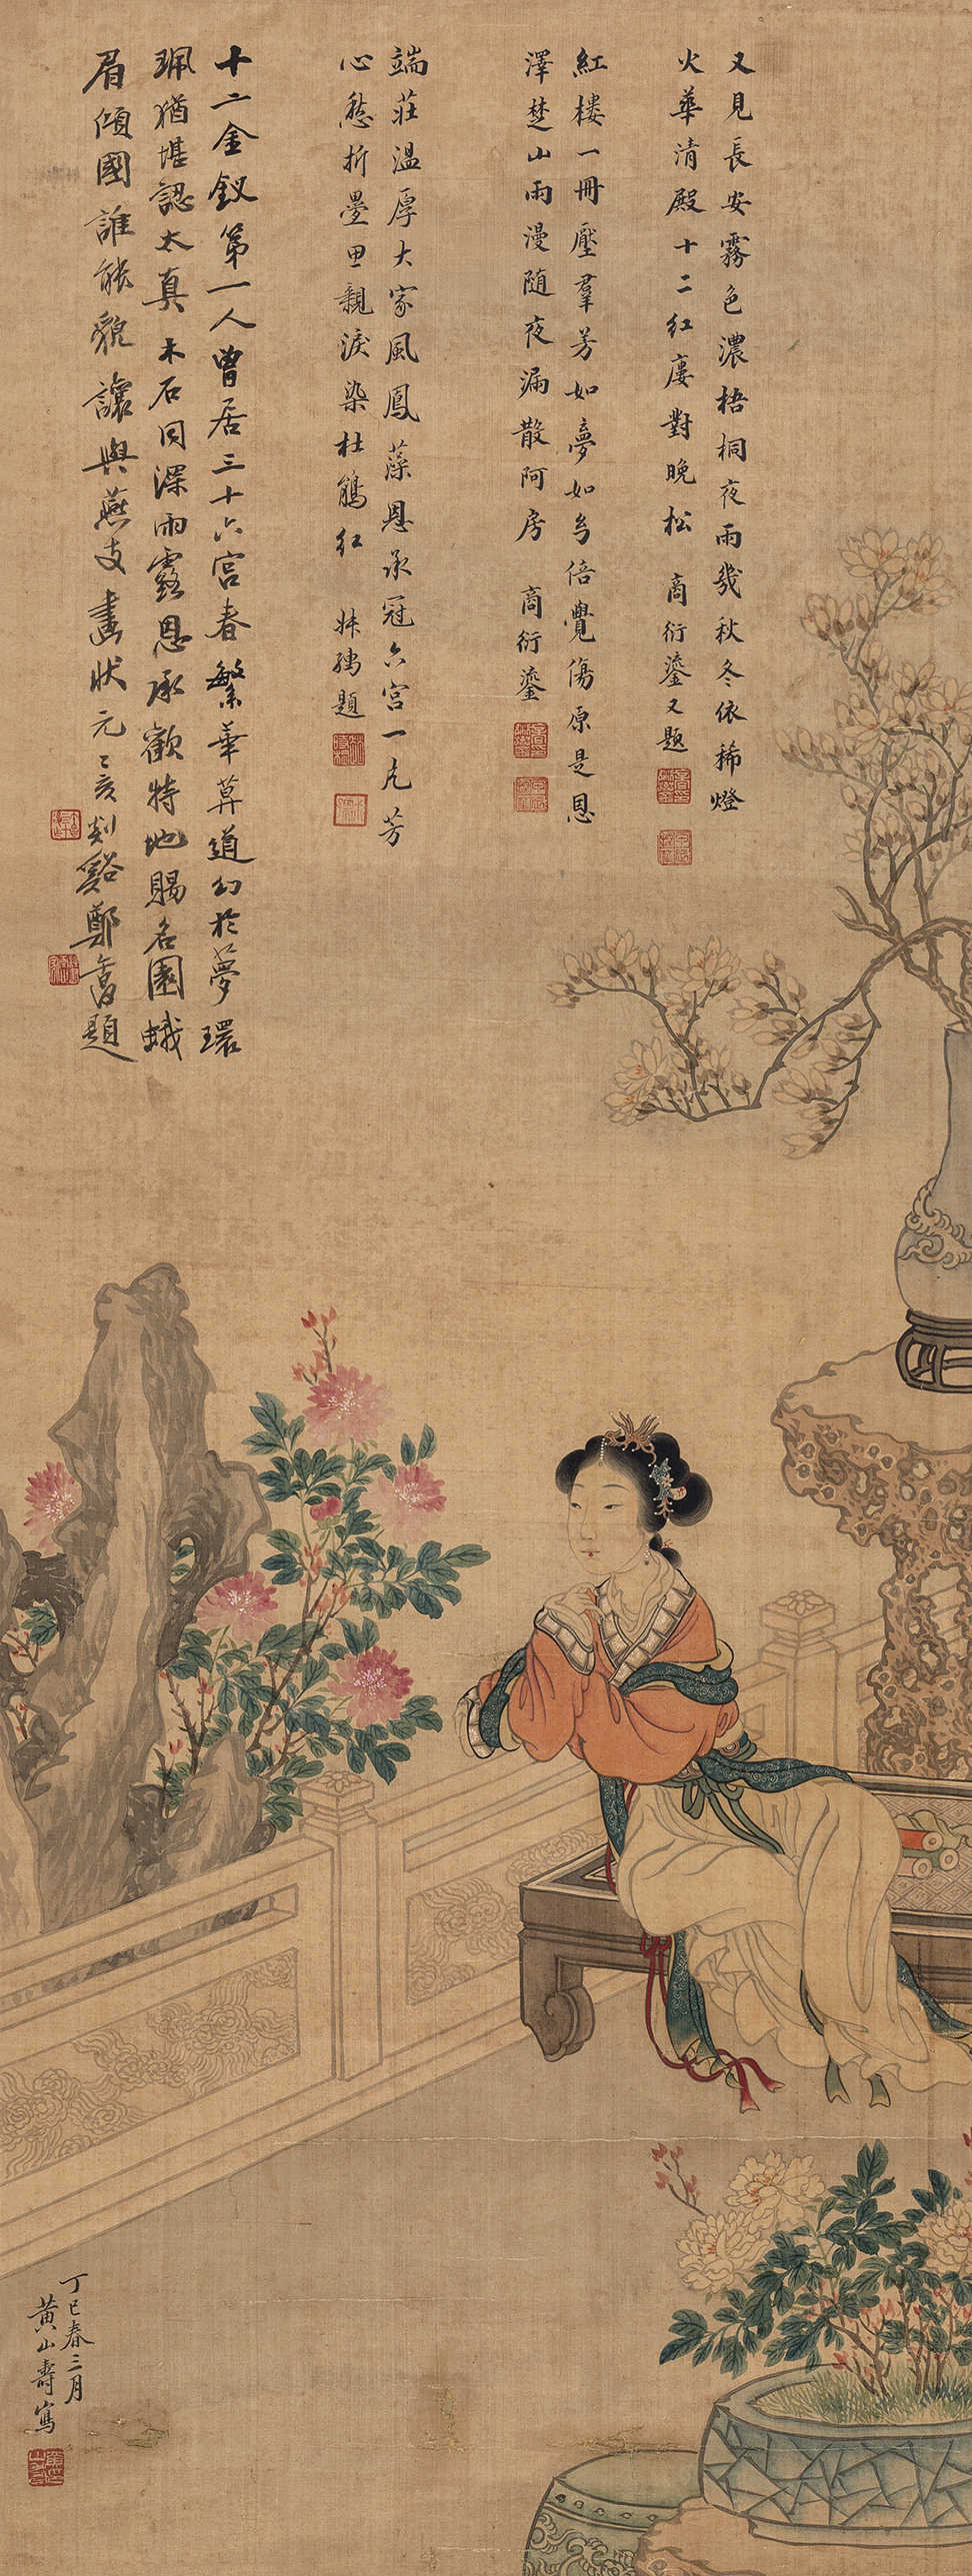 又見長安霧色濃梧桐夜雨幾秋冬依稀燈
火華清殿十二紅廔對晚松 商衍鎏又題
紅樓一冊壓羣芳如夢如幻倍覺傷原是恩
澤楚山雨漫隨夜漏散阿房 商衍鎏
端莊溫厚大家風鳳藻恩承冠六宮一九芳
心愁折疊思親淚染杜鵑紅 題
十二金釵第一人曾居三十六宮春繁華莫道幻於夢環
珮猶堪認太真木石同深雨露恩承歡特地賜名園蛾
眉傾國誰能貌讓與燕支畫狀元乙亥剡谿鄭題
丁巳春三月
黃山壽寫